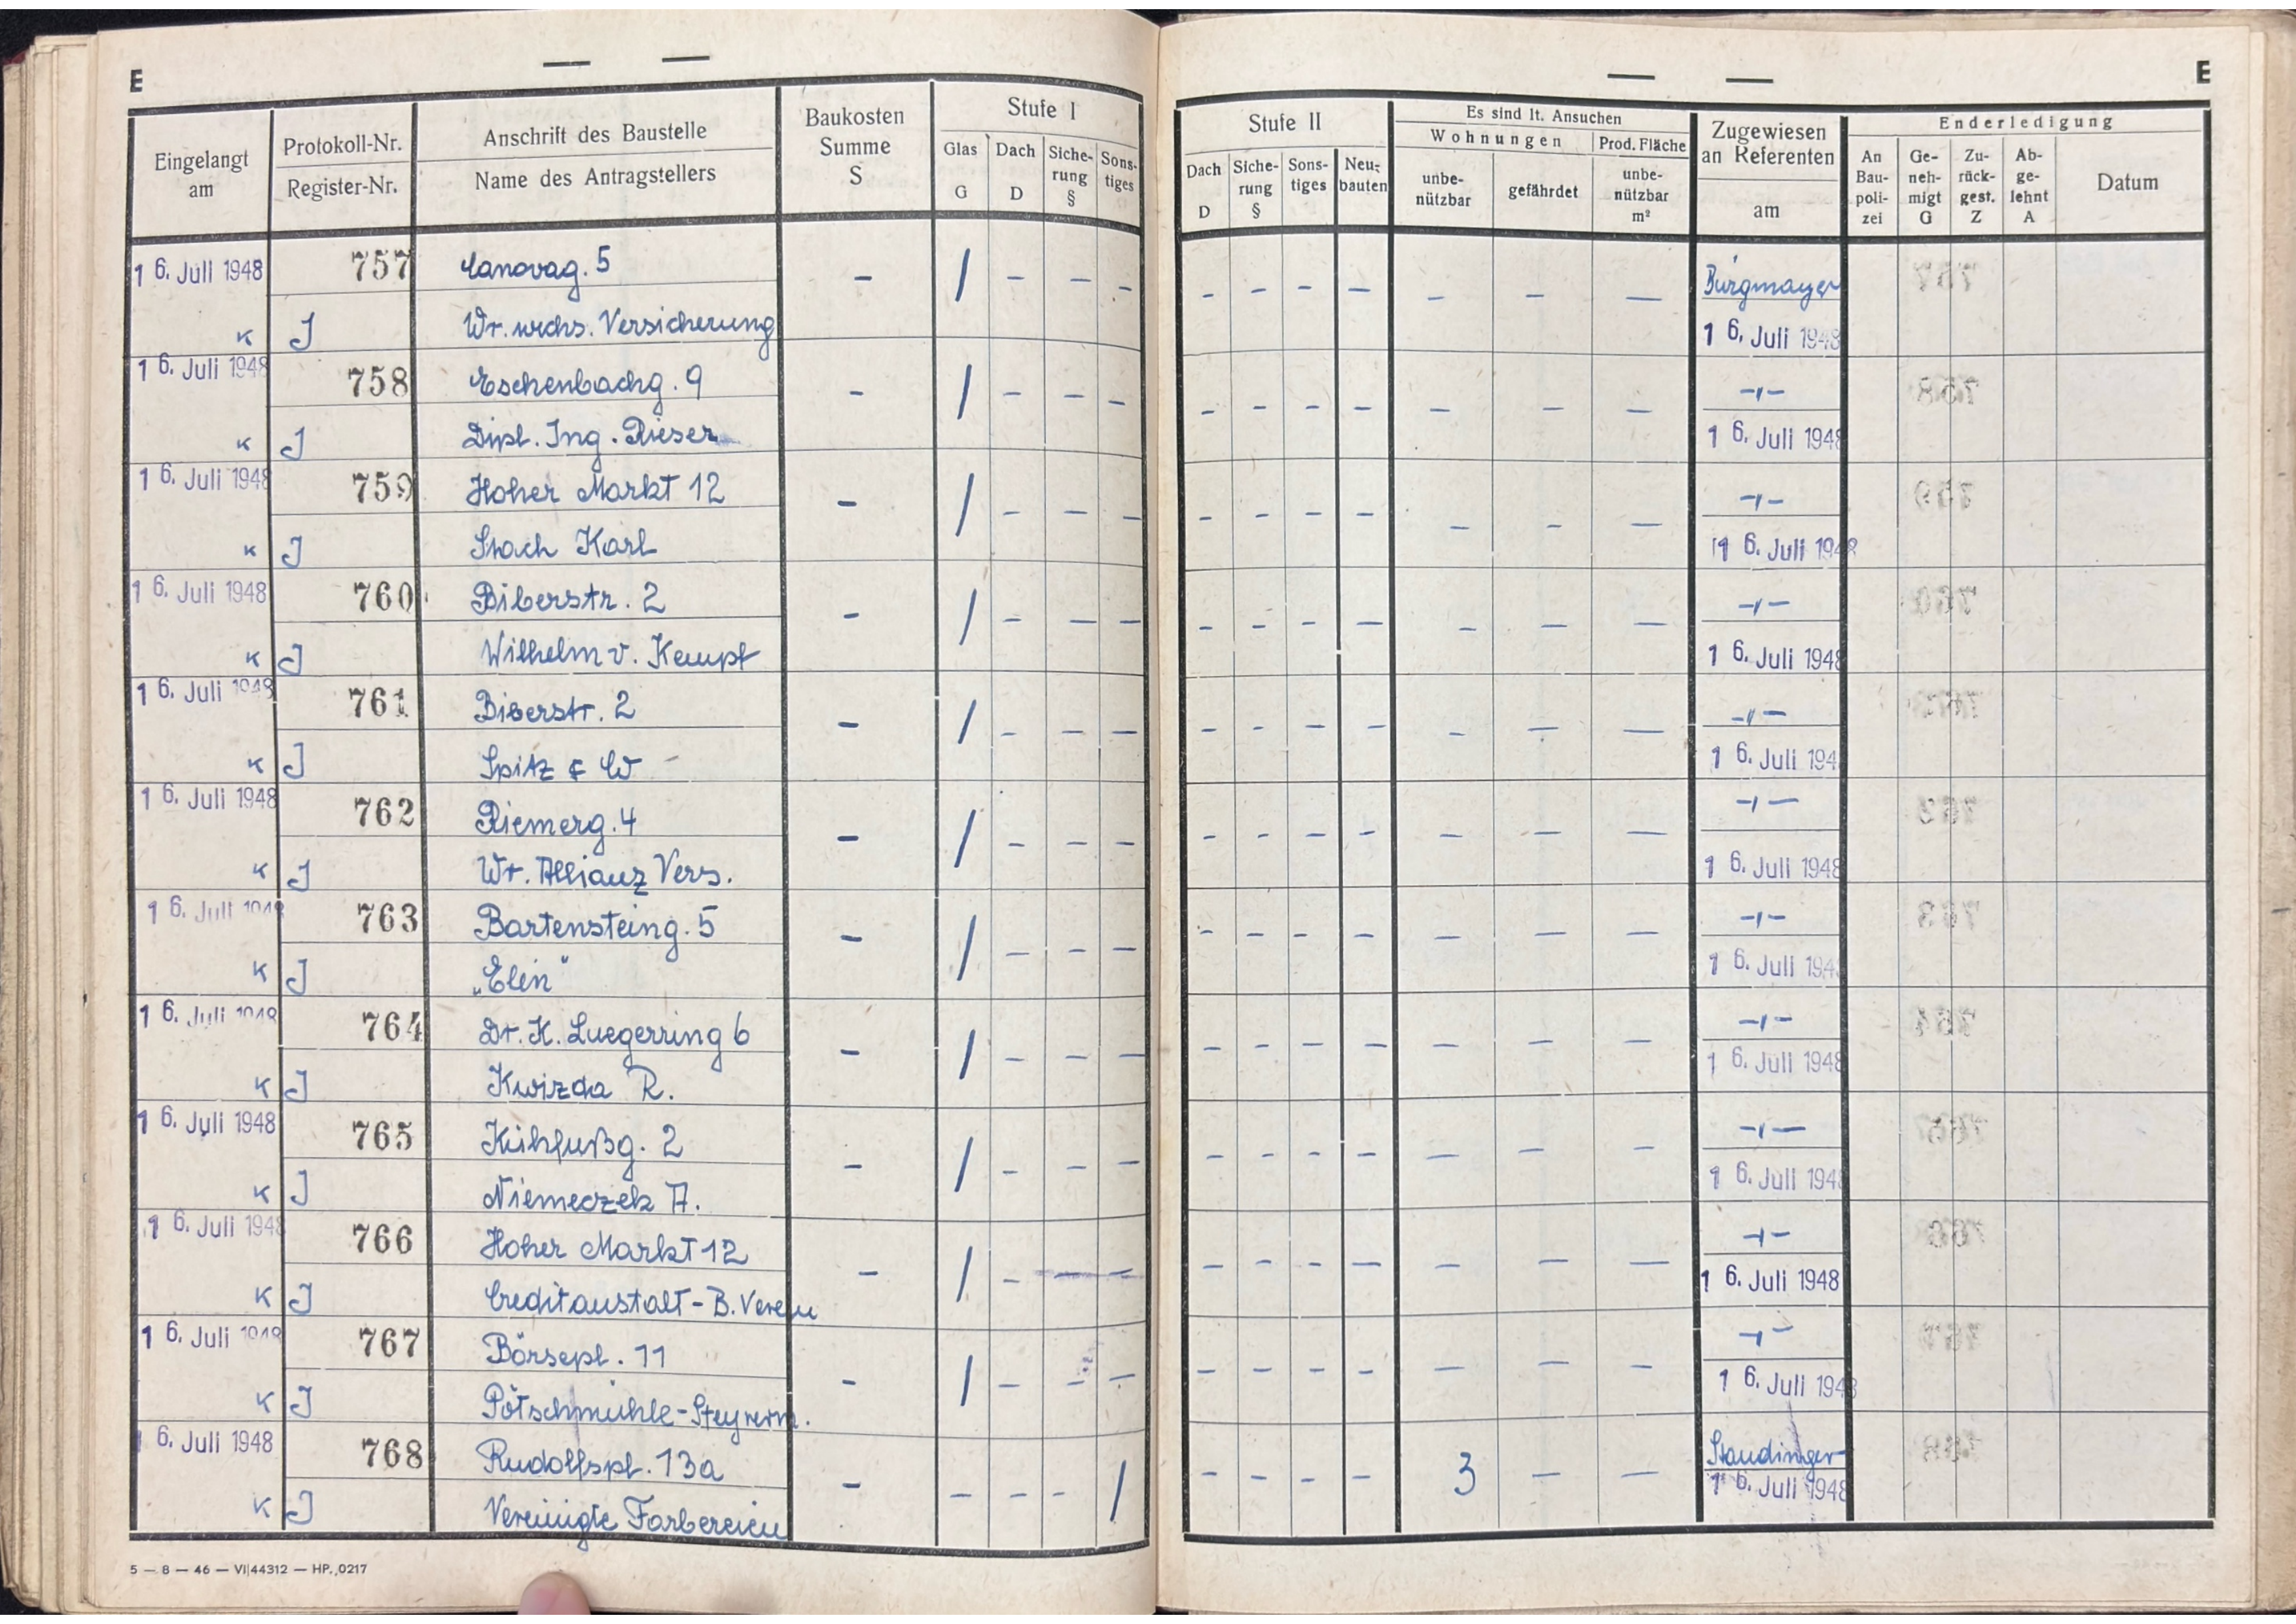 E
Eingelangt am
Protokoll-Nr.
Register-Nr.
Anschrift des Baustelle
Name des Antragstellers
Baukosten Summe S
Stufe I
Glas G
Dach D
Siche-rung §
Sons-tiges
Stufe II
Dach D
Siche-rung §
Sons-tiges
Neu-bauten
Es sind lt. Ansuchen
Wohnungen
Prod. Fläche
unbe-nützbar
gefährdet
unbe-nützbar m²
Zugewiesen an Referenten
am
Enderledigung
An Bau-poli-zei
Ge-neh-migt G
Zu-rück-gest. Z
Ab-ge-lehnt A
Datum
E
1 6. Juli 1948 757 Canovag. 5 – / – – – – – – – – – – Burgmayer
K J Wr. wchs. Versicherung 1 6. Juli 1948
1 6. Juli 1948 758 Eschenbachg. 9 – / – – – – – – – – – – –"–
K J Dipl. Ing. Rieser 1 6. Juli 1948
1 6. Juli 1948 759 Hoher Markt 12 – / – – – – – – – – – – –"–
K J Stach Karl 1 6. Juli 1948
1 6. Juli 1948 760 Biberstr. 2 – / – – – – – – – – – – –"–
K J Wilhelm v. Kempf 1 6. Juli 1948
1 6. Juli 1948 761 Biberstr. 2 – / – – – – – – – – – – –"–
K J Spitz & Co 1 6. Juli 194
1 6. Juli 1948 762 Riemerg. 4 – / – – – – – – – – – – –"–
K J Wr. Allianz Vers. 1 6. Juli 1948
1 6. Juli 1948 763 Bartensteing. 5 – / – – – – – – – – – – –"–
K J „Elin" 1 6. Juli 1948
1 6. Juli 1948 764 Dr. K. Luegerring 6 – / – – – – – – – – – – –"–
K J Kwizda R. 1 6. Juli 1948
1 6. Juli 1948 765 Kühfußg. 2 – / – – – – – – – – – – –"–
K J Niemeczek A. 1 6. Juli 1948
1 6. Juli 1948 766 Hoher Markt 12 – / – – – – – – – – – – –"–
K J Creditanstalt - B. Verein 1 6. Juli 1948
1 6. Juli 1948 767 Börsepl. 11 – / – – – – – – – – – – –"–
K J Pötschmühle - Steyrerm. 1 6. Juli 1948
1 6. Juli 1948 768 Rudolfspl. 13a – – – – / – – – – 3 – – Staudinger
K J Vereinigte Färbereien 1 6. Juli 1948
5 — 8 — 46 — VI|44312 — HP. 0217